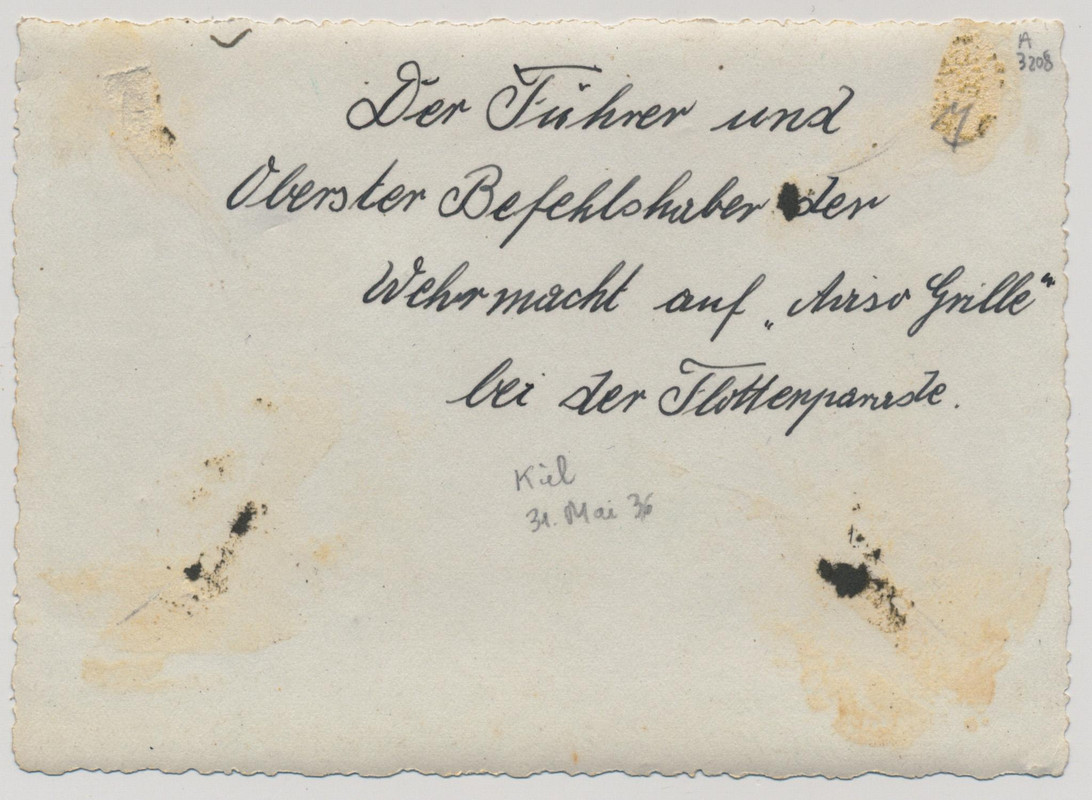 A
3208
7
Der Führer und
Oberster Befehlshaber der
Wehrmacht auf „Aviso Grille“
bei der Flottenparade.
Kiel
31. Mai 36